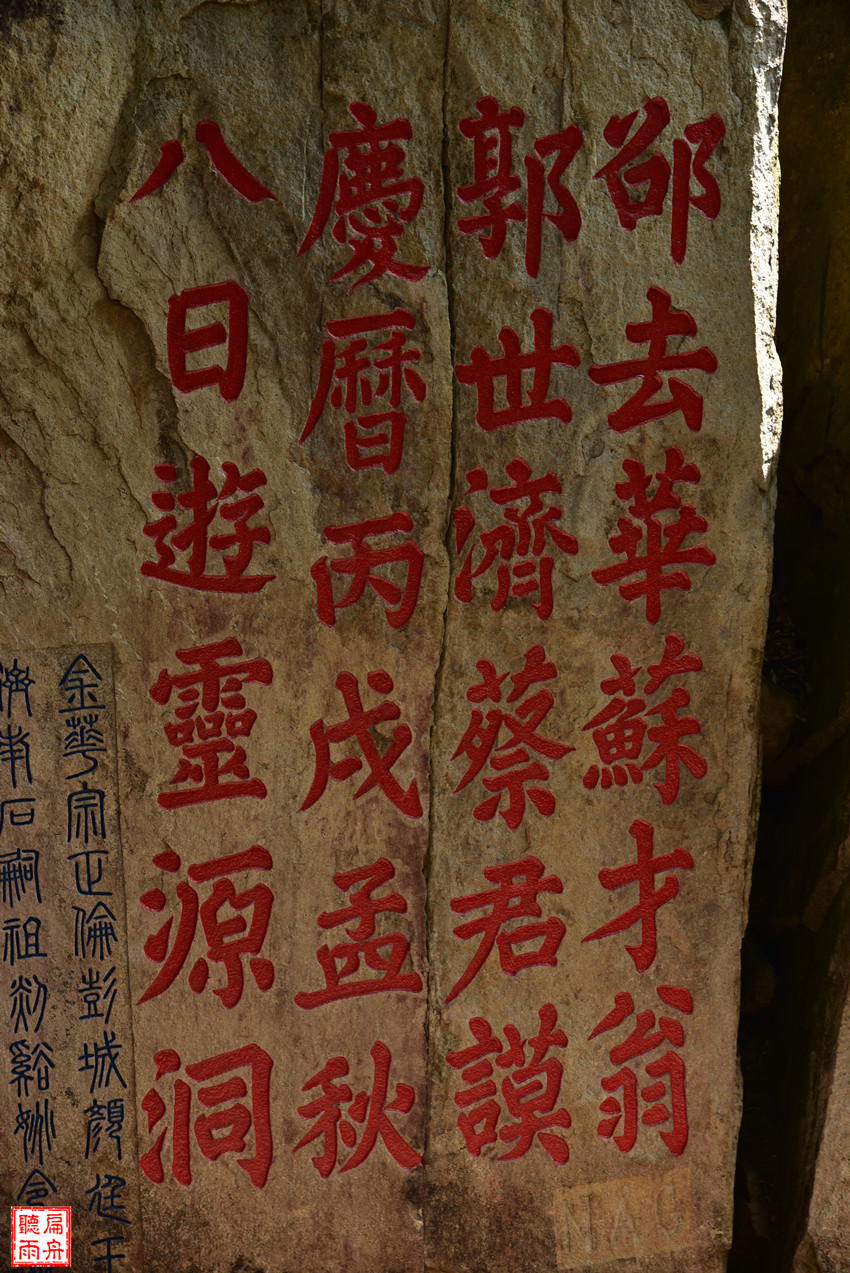 邵去華蘇才翁
郭世濟蔡君謨
慶曆丙戌孟秋
八日遊靈源洞
金華宗正倫彭城顏延干
石嗣祖剡谿
扁舟
聽雨